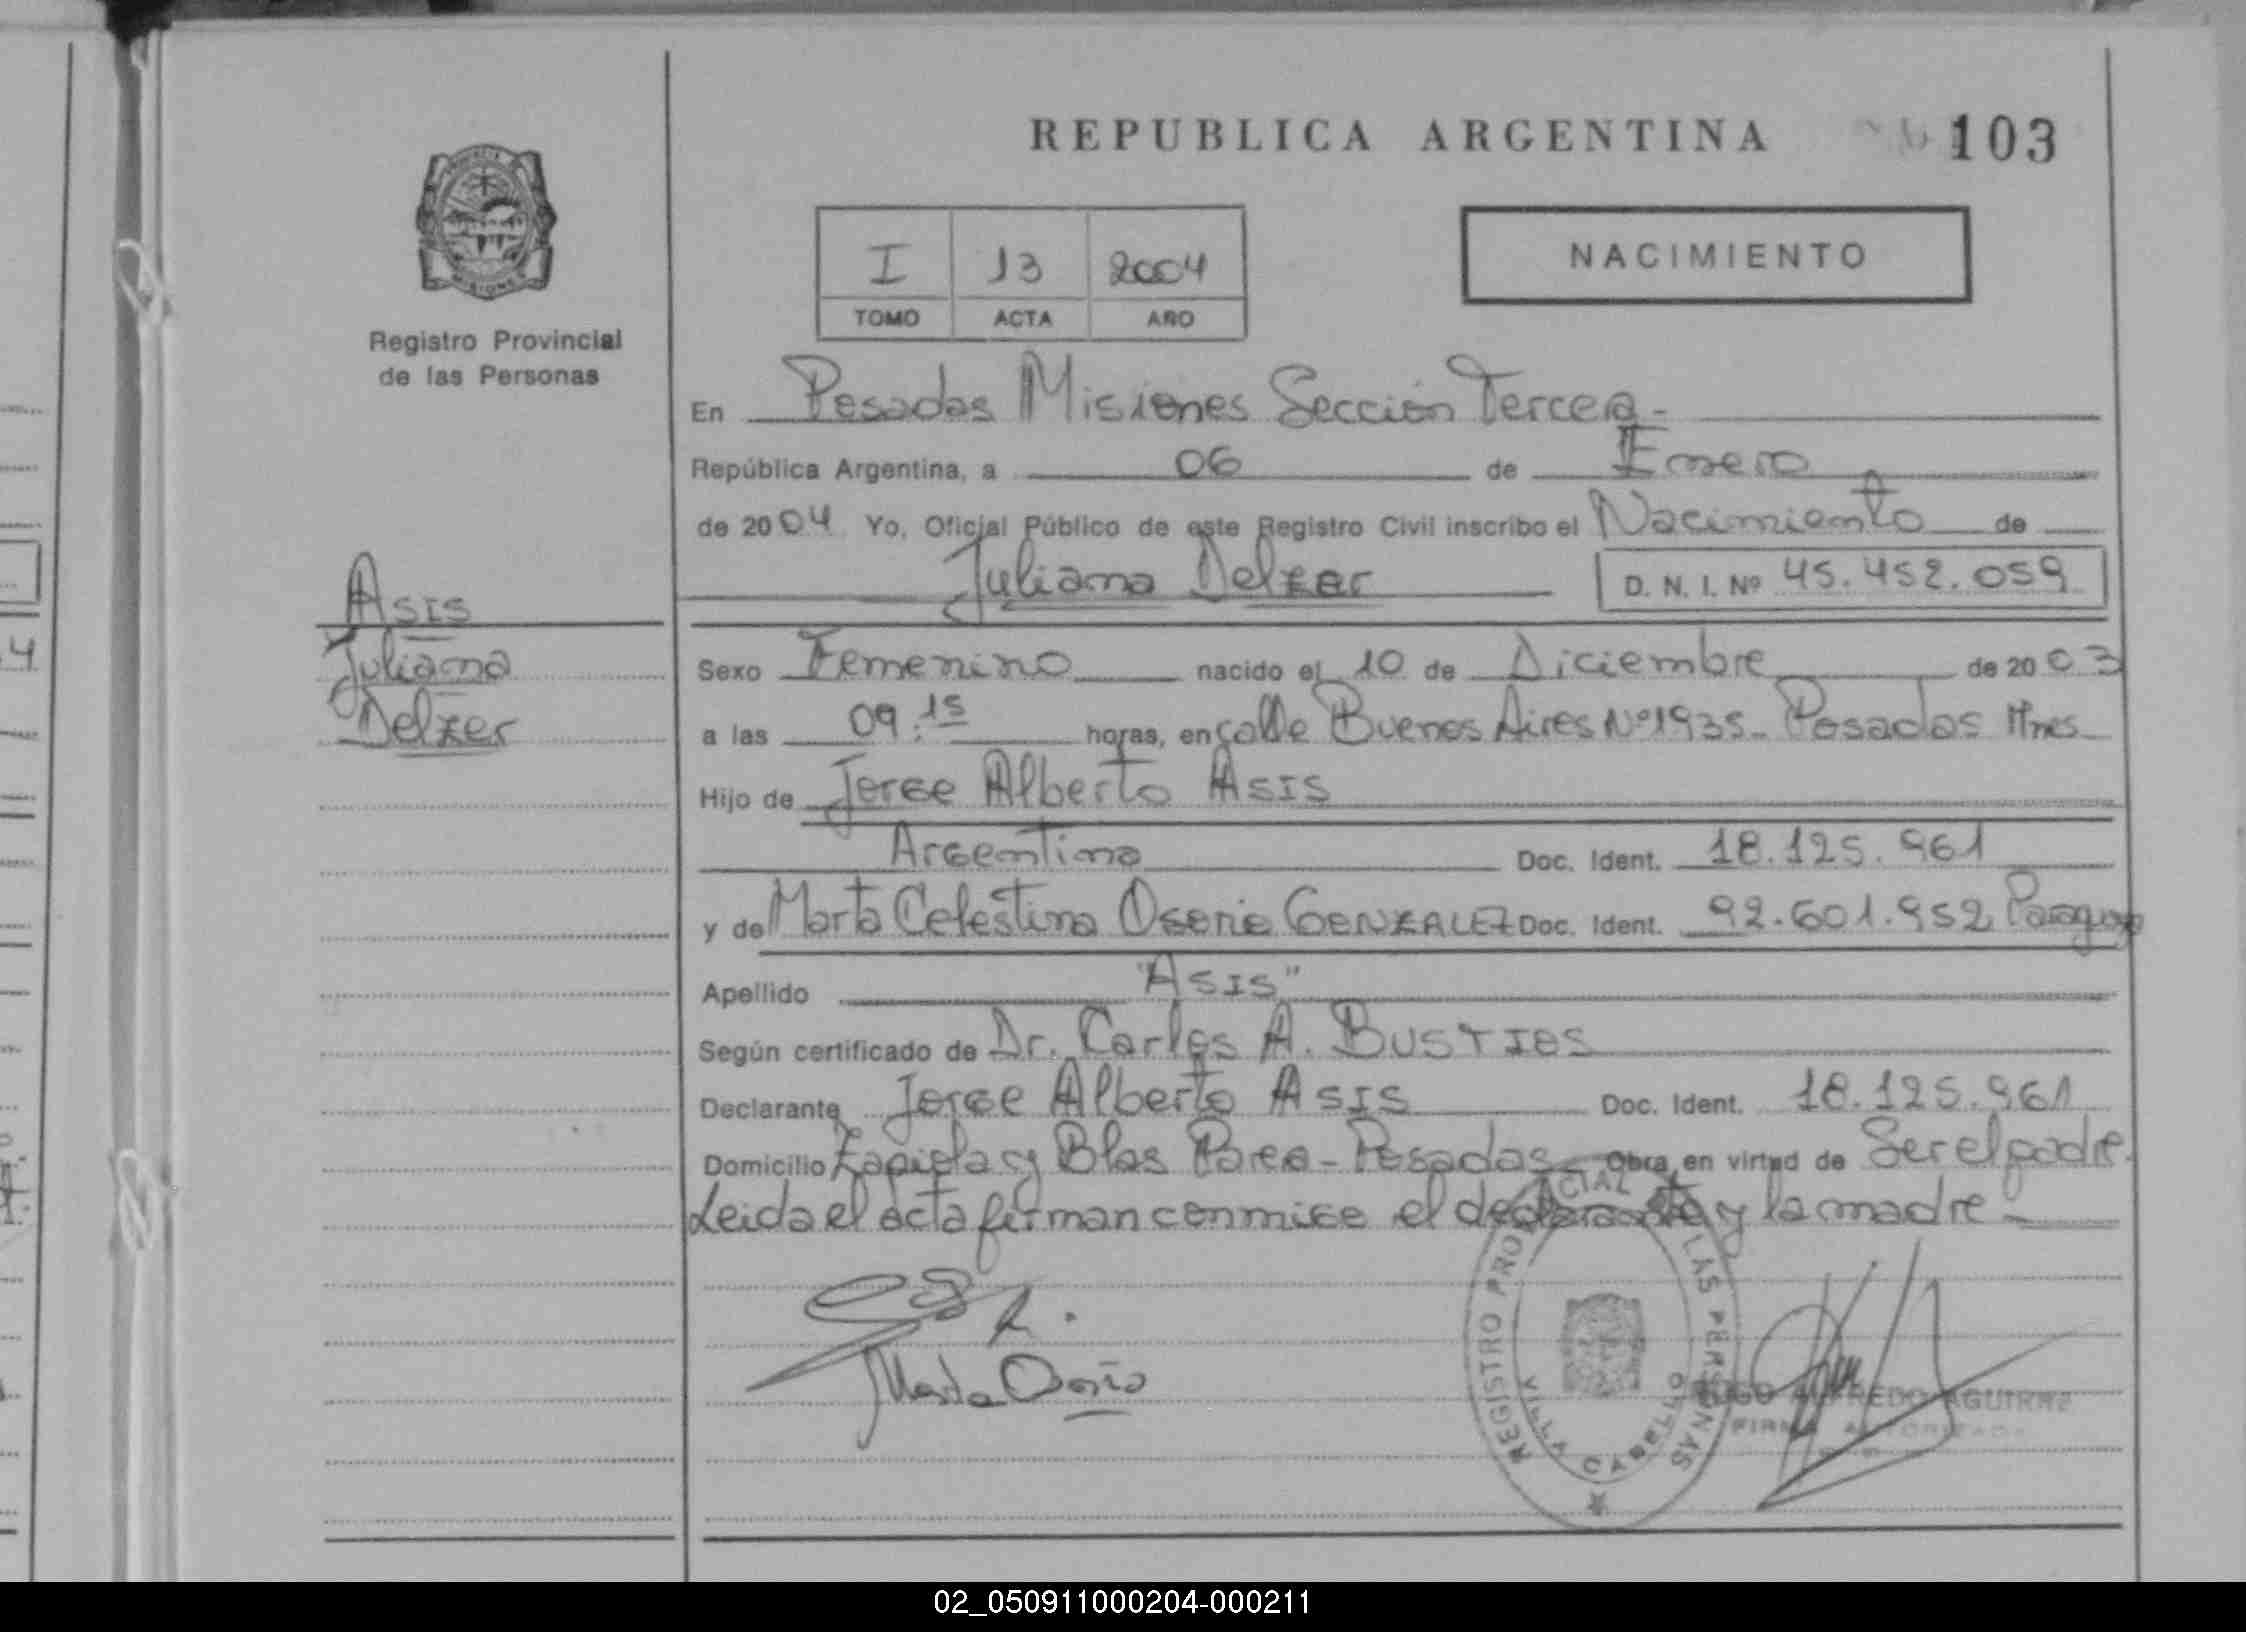 REPUBLICA ARGENTINA
103
I 13 2004
TOMO ACTA AÑO
NACIMIENTO
Registro Provincial
de las Personas
En Posadas Misiones Sección Tercera-
República Argentina, a 06 de Enero
de 2004 Yo, Oficial Público de este Registro Civil inscribo el Nacimiento de
Juliana Delzer D. N. I. Nº 45.452.059
Asis
Juliana
Delzer
Sexo Femenino nacido el 10 de Diciembre de 2003
a las 09:15 horas, en calle Buenos Aires Nº1935- Posadas Mnes
Hijo de Jorge Alberto Asis
Argentino Doc. Ident. 18.125.961
y de Marta Celestina Osorio GONZALEZ Doc. Ident. 92.601.952 Paraguay
Apellido "Asis"
Según certificado de Dr. Carlos A. BUSTIOS
Declarante Jorge Alberto Asis Doc. Ident. 18.125.961
Domicilio Zapiola y Blas Parea - Posadas - Obra en virtud de Ser el padre.
Leida el acta firman conmigo el declarante y la madre -
Marta Osorio
REGISTRO PROVINCIAL DE LAS PERSONAS
VILLA CABELLO
HUGO ALFREDO AGUIRRE
FIRMA AUTORIZADA
02_050911000204-000211